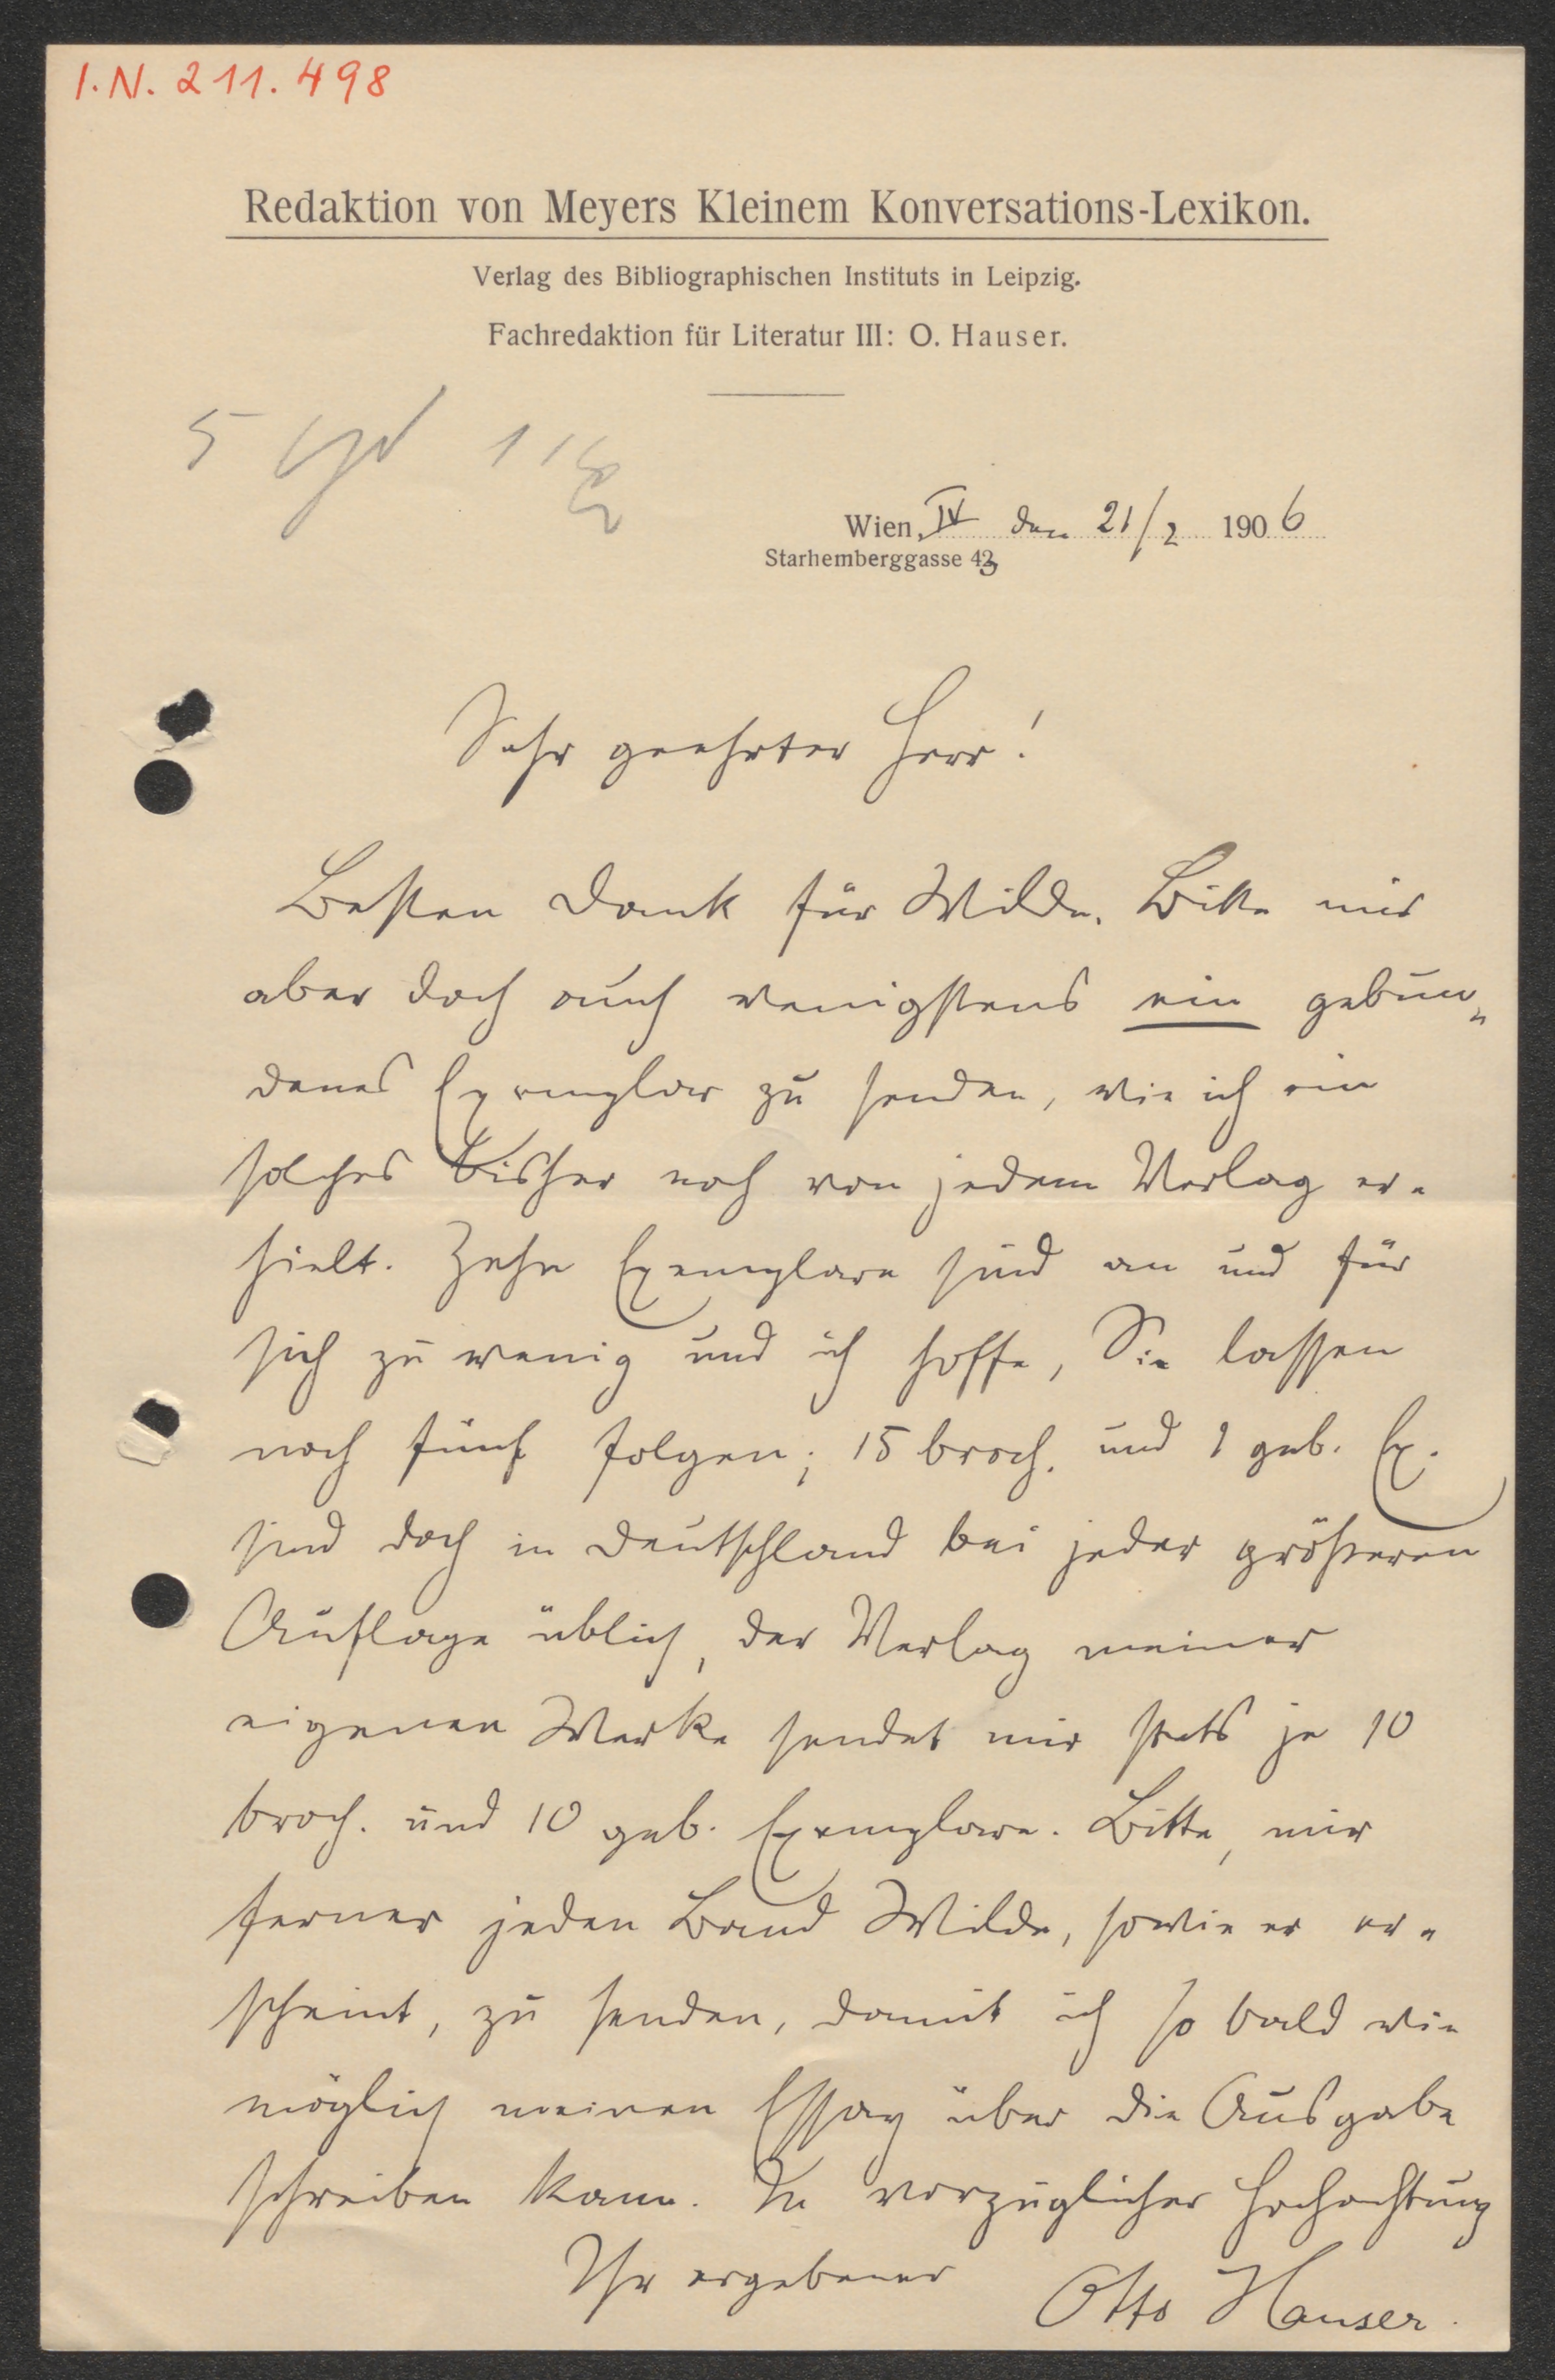 I.N. 211.498
Redaktion von Meyers Kleinem Konversations-Lexikon.
Verlag des Bibliographischen Instituts in Leipzig.
Fachredaktion für Literatur III: O. Hauser.
5
Wien, IV den 21/2 1906
Starhemberggasse 43
Sehr geehrter Herr!
Besten Dank für Wilde. Bitte mir
aber doch auch wenigstens ein gebun-
denes Exemplar zu senden, wie ich ein
solches bisher noch von jedem Verlag er-
hielt. Zehn Exemplare sind an und für
sich zu wenig und ich hoffe, Sie lassen
noch fünf folgen; 15 broch. und 1 geb. Ex.
sind doch in Deutschland bei jeder größeren
Auflage üblich, der Verlag meiner
eigenen Werke sendet mir stets je 10
broch. und 10 geb. Exemplare. Bitte, mir
ferner jeden Band Wilde, sowie er er-
scheint, zu senden, damit ich so bald wie
möglich meinen Essay über die Ausgabe
schreiben kann. In vorzüglicher Hochachtung
Ihr ergebener Otto Hauser.